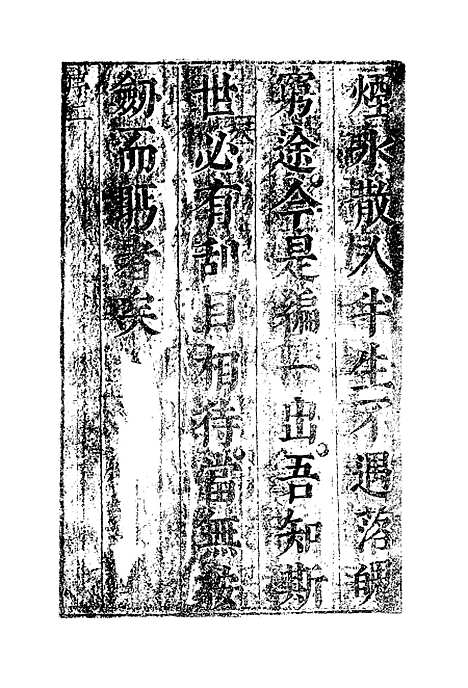 煙水散人半生不遇落魄
窮途今是編一出吾知斯
世必有刮目相待當無按
劍而眄者矣
序二